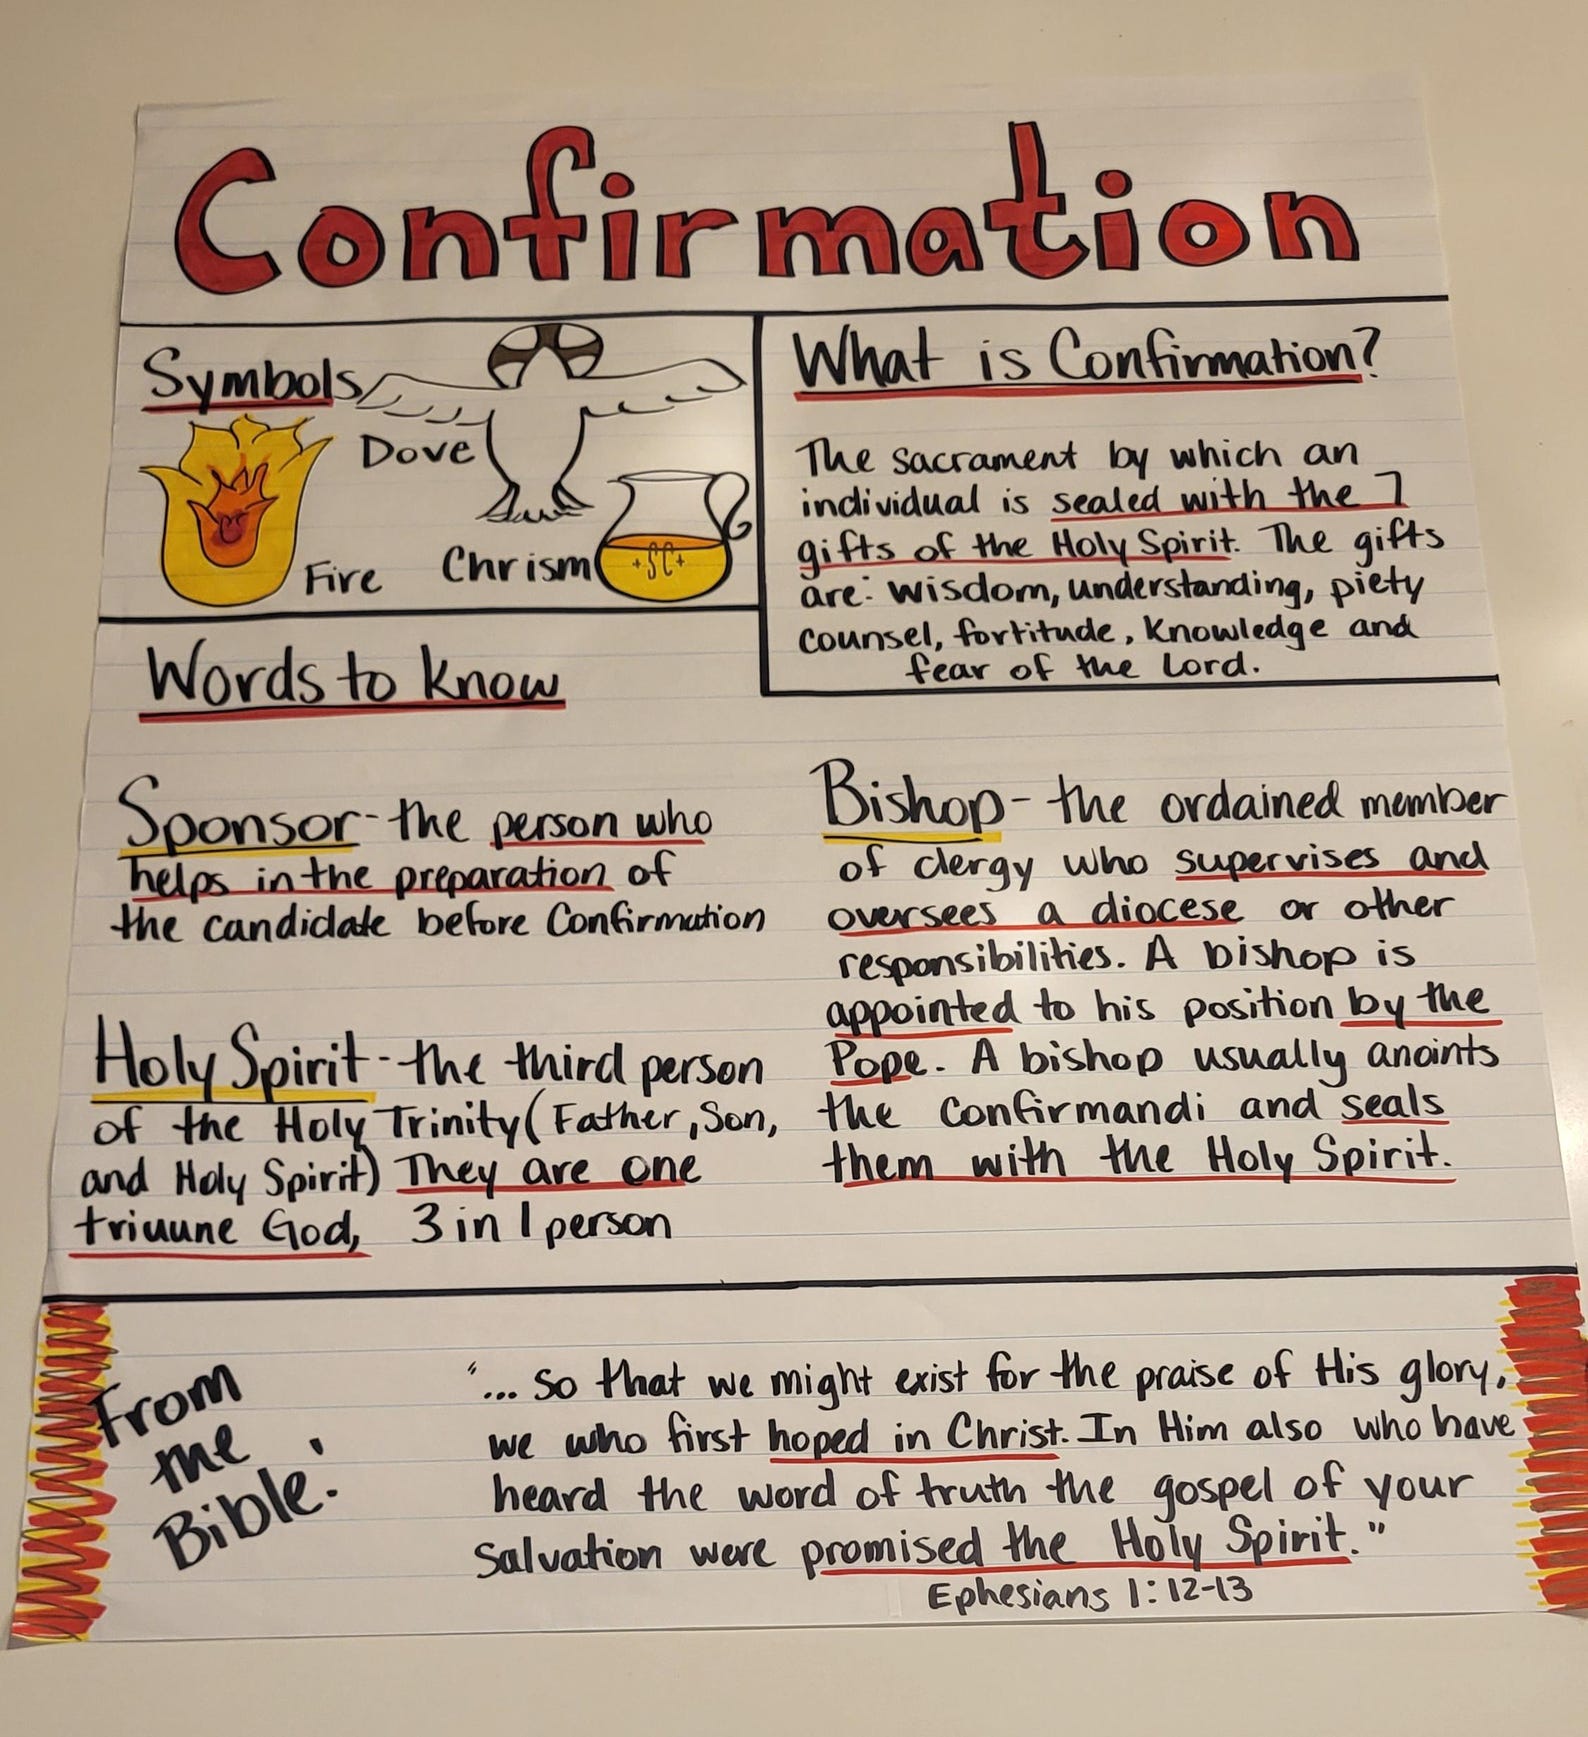 Confirmation
Symbols
Dove
Fire
Chrism
+SC+
What is Confirmation?
The sacrament by which an
individual is sealed with the 7
gifts of the Holy Spirit. The gifts
are: wisdom, understanding, piety
counsel, fortitude, knowledge and
fear of the Lord.
Words to know
Sponsor - the person who
helps in the preparation of
the candidate before Confirmation
Holy Spirit - the third person
of the Holy Trinity (Father, Son,
and Holy Spirit) They are one
triuune God, 3 in 1 person
Bishop - the ordained member
of clergy who supervises and
oversees a diocese or other
responsibilities. A bishop is
appointed to his position by the
Pope. A bishop usually anoints
the confirmandi and seals
them with the Holy Spirit.
From
the
Bible:
"... so that we might exist for the praise of His glory,
we who first hoped in Christ. In Him also who have
heard the word of truth the gospel of your
salvation were promised the Holy Spirit."
Ephesians 1:12-13